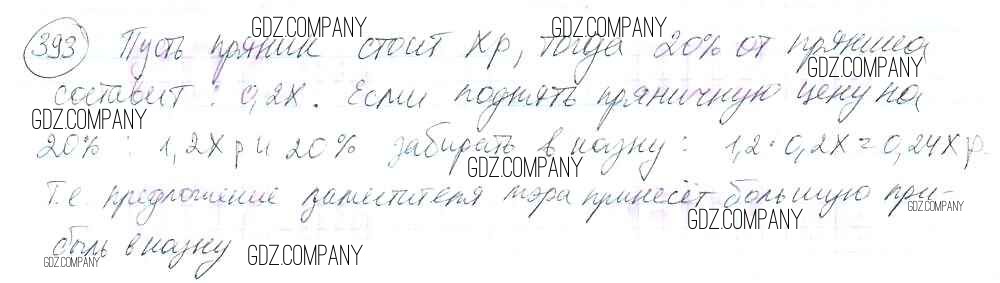 GDZ.COMPANY GDZ.COMPANY
393 Пусть пряник стоит Xр, тогда 20% от пряника
GDZ.COMPANY
составит : 0,2X. Если поднять пряничную цену на
GDZ.COMPANY
20% : 1,2Xр и 20% забирать в казну : 1,2·0,2X=0,24Xр.
GDZ.COMPANY
Т.е. предложение заместителя мэра принесёт большую при-
GDZ.COMPANY GDZ.COMPANY
быль в казну
GDZ.COMPANY GDZ.COMPANY